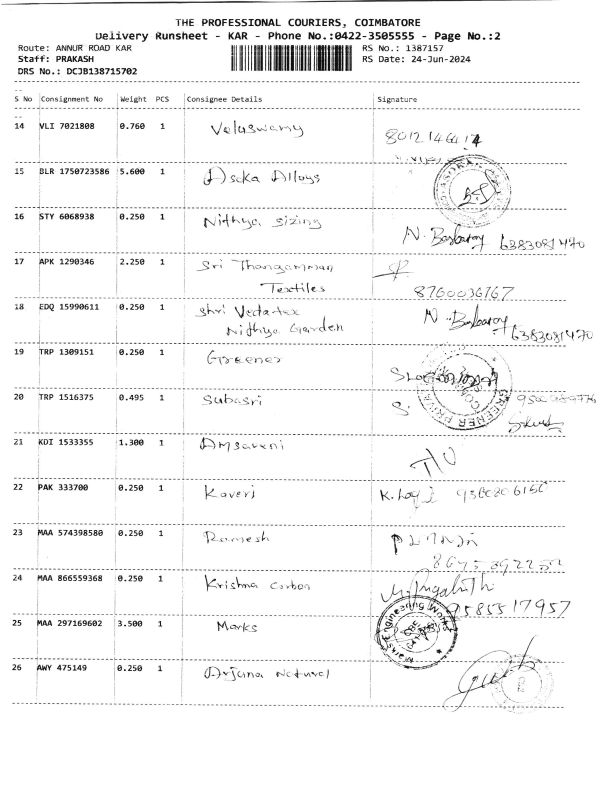 THE PROFESSIONAL COURIERS, COIMBATORE
Delivery Runsheet - KAR - Phone No.:0422-3505555 - Page No.:2
Route: ANNUR ROAD KAR RS No.: 1387157
Staff: PRAKASH RS Date: 24-Jun-2024
DRS No.: DCJB138715702
S No Consignment No Weight PCS Consignee Details Signature
14 VLI 7021808 0.760 1 Veluswamy 8012146414
15 BLR 1750723586 5.600 1 Aseka Alloys
16 STY 6068938 0.250 1 Nithya sizing
N. Baskaran 6383081470
17 APK 1290346 2.250 1 Sri Thangamman
Textiles 8760036767
18 EDQ 15990611 0.250 1 Shri Vedatex
Nithya Garden
N. Baskaran 6383081470
19 TRP 1309151 0.250 1 Greener
GREENER PRIVA
20 TRP 1516375 0.495 1 Subasri S.
21 KDI 1533355 1.300 1 Amsaveni
22 PAK 333700 0.250 1 Kaveri
23 MAA 574398580 0.250 1 Ramesh
24 MAA 866559368 0.250 1 Krishna Carbon
9585517957
25 MAA 297169602 3.500 1 Marks
Marks Engineering Works
26 AWY 475149 0.250 1 Arjuna Natural